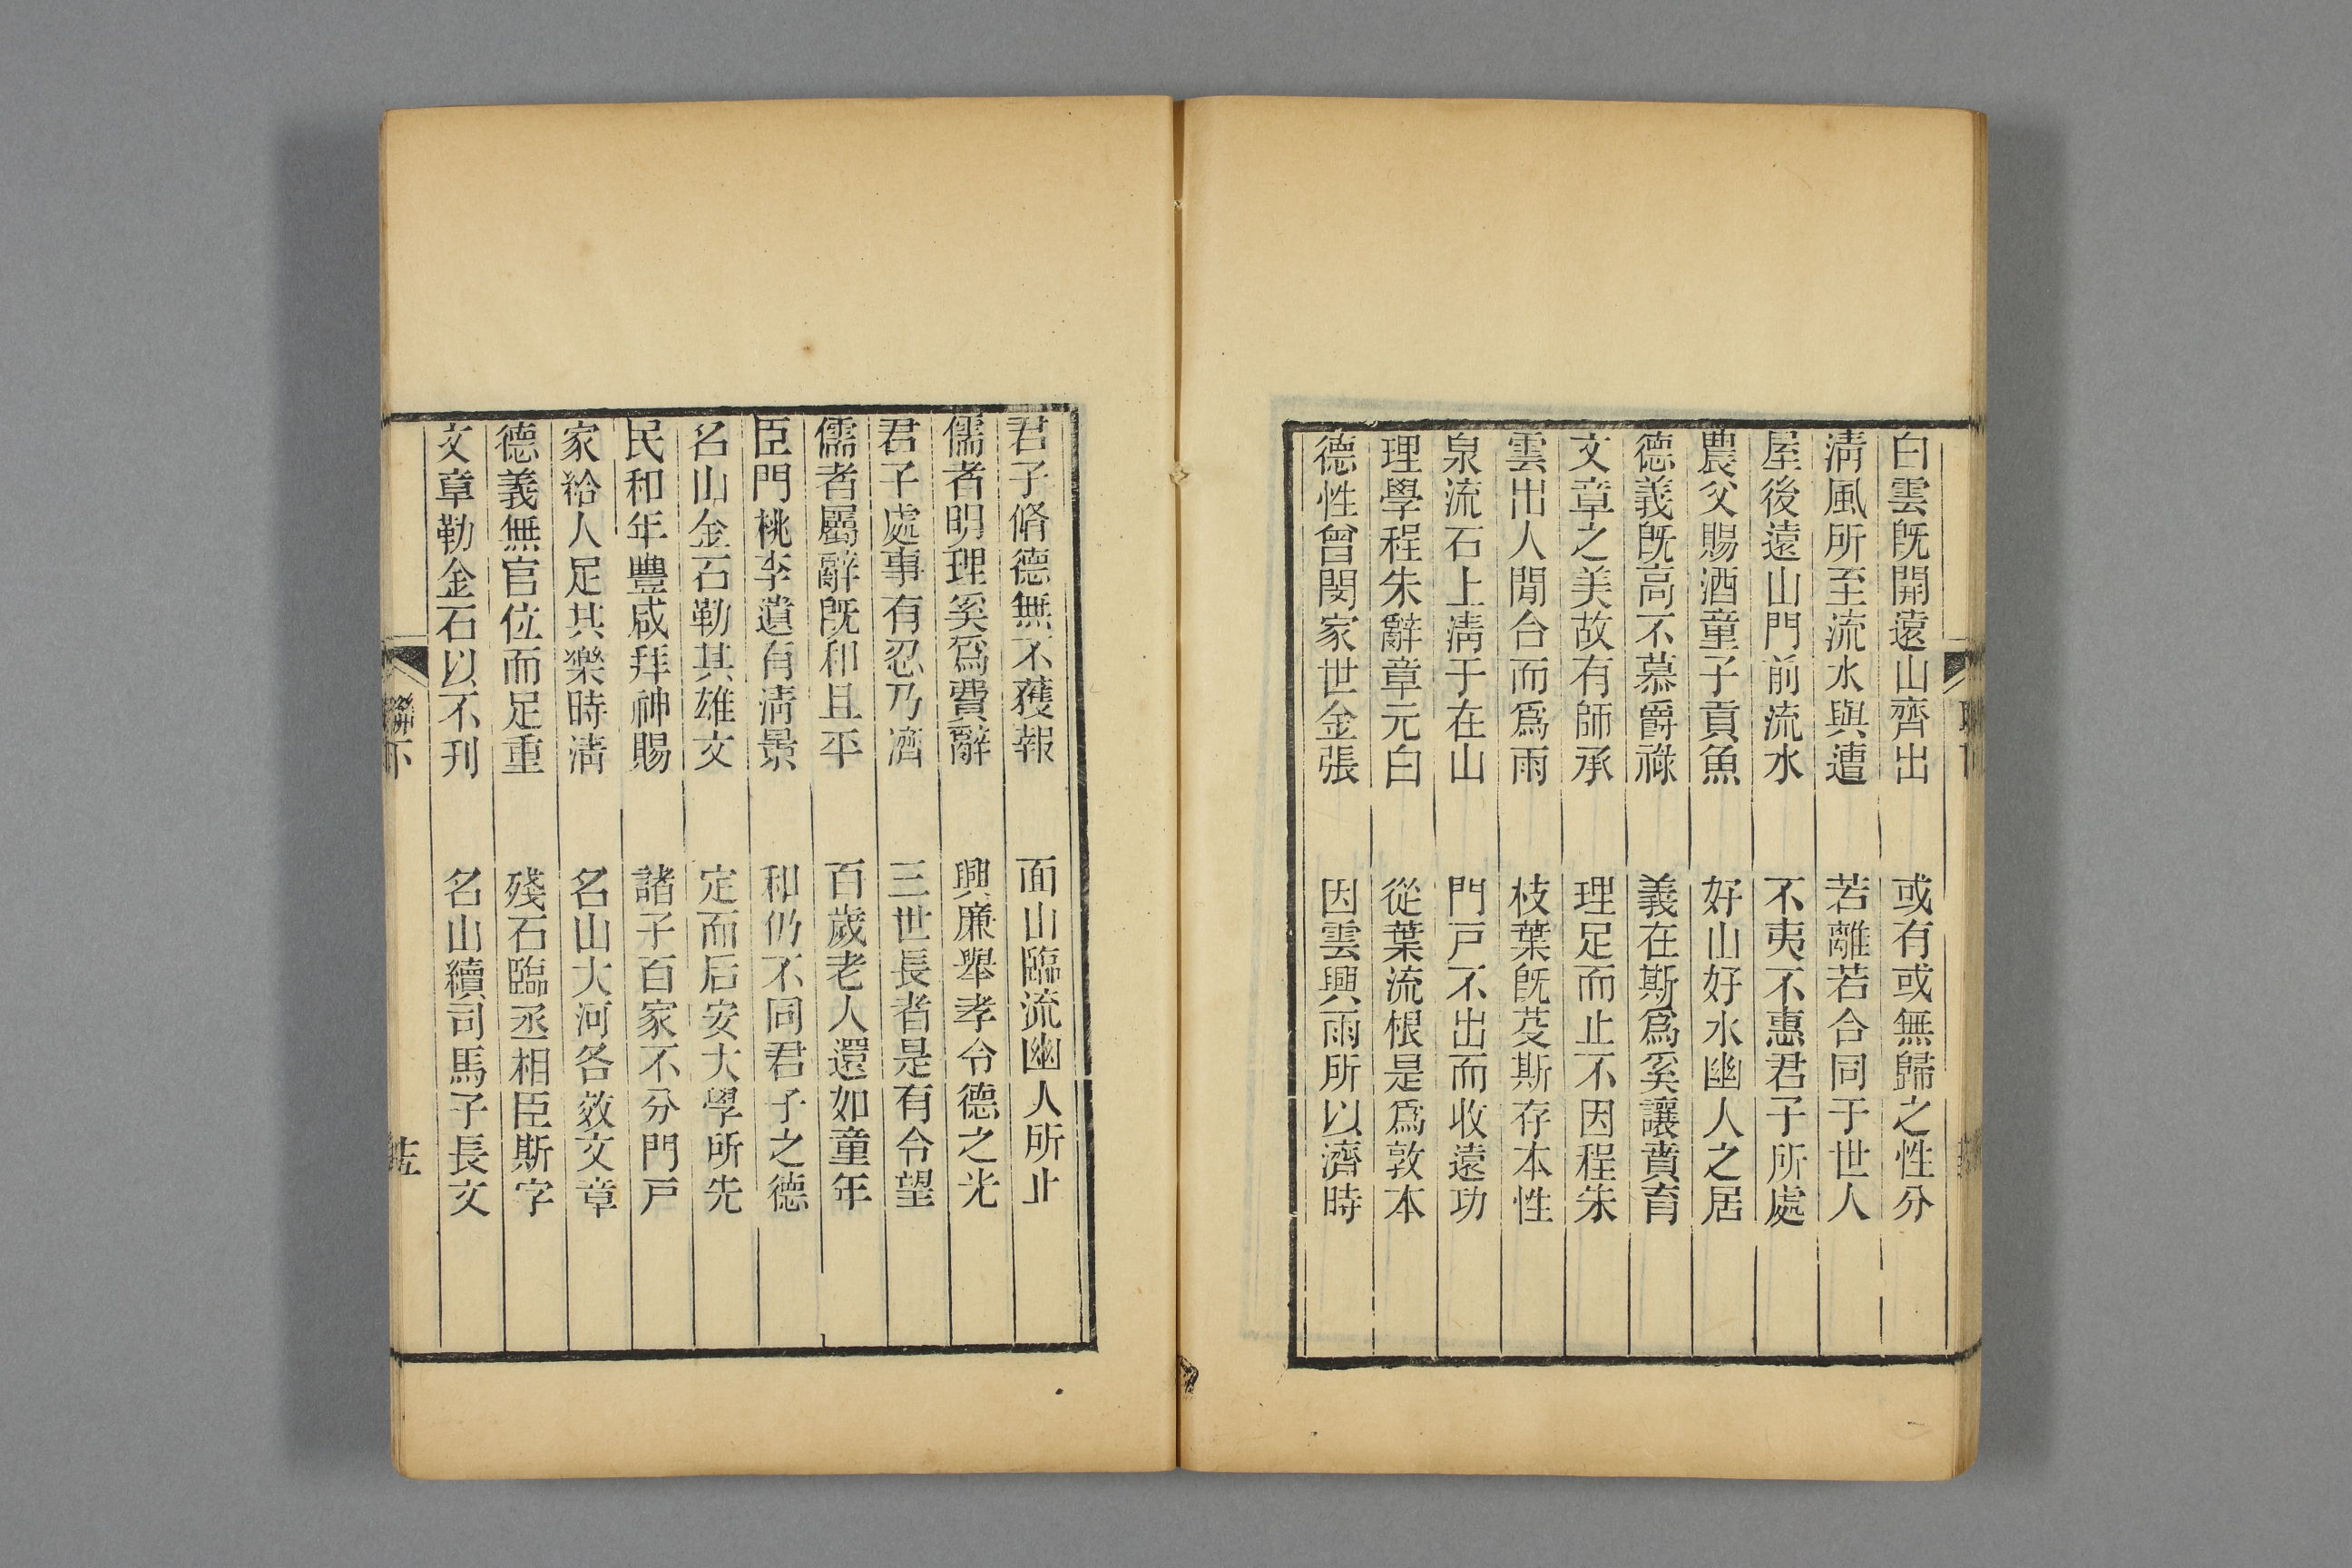 白雲旣開遠山齊出　或有或無歸之性分
淸風所至流水與遭　若離若合同于世人
屋後遠山門前流水　不夷不惠君子所處
農父賜酒童子貢魚　好山好水幽人之居
德義旣高不慕爵祿　義在斯爲奚讓賁育
文章之美故有師承　理足而止不因程朱
雲出人閒合而爲雨　枝葉旣芟斯存本性
泉流石上淸于在山　門戸不出而收遠功
理學程朱辭章元白　從葉流根是爲敦本
德性曾閔家世金張　因雲興雨所以濟時
君子脩德無不獲報　面山臨流幽人所止
儒者明理奚爲費辭　興廉舉孝令德之光
君子處事有忍乃濟　三世長者是有令望
儒者屬辭旣和且平　百歲老人還如童年
臣門桃李遺有淸景　和仍不同君子之德
名山金石勒其雄文　定而后安大學所先
民和年豐咸拜神賜　諸子百家不分門戸
家給人足共樂時淸　名山大河各效文章
德義無官位而足重　殘石臨丞相臣斯字
文章勒金石以不刊　名山續司馬子長文
聯下